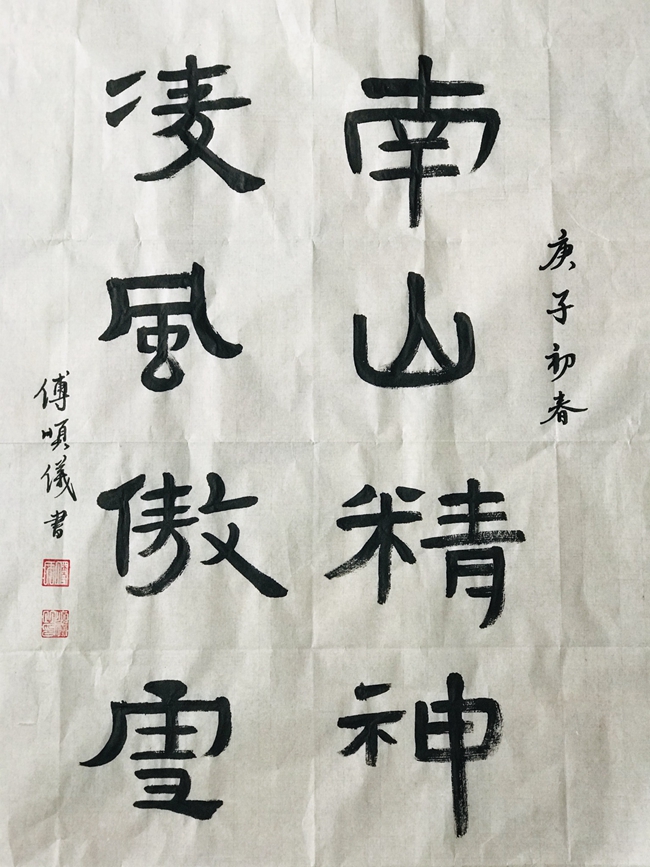 庚子初春
南山精神
凌風傲雪
傅順儀書